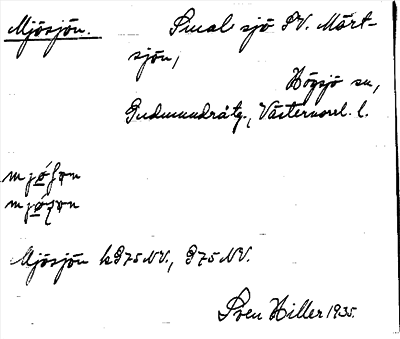 Mjösjön. Smal sjö SV. Märt-
sjön,
Högsjö sn,
Gudmundråtg., Västernorrl. l.
mjǿʃɷn
mjǿʒɷn
Mjösjön k975NV., 975NV.
Sven Hiller 1935.